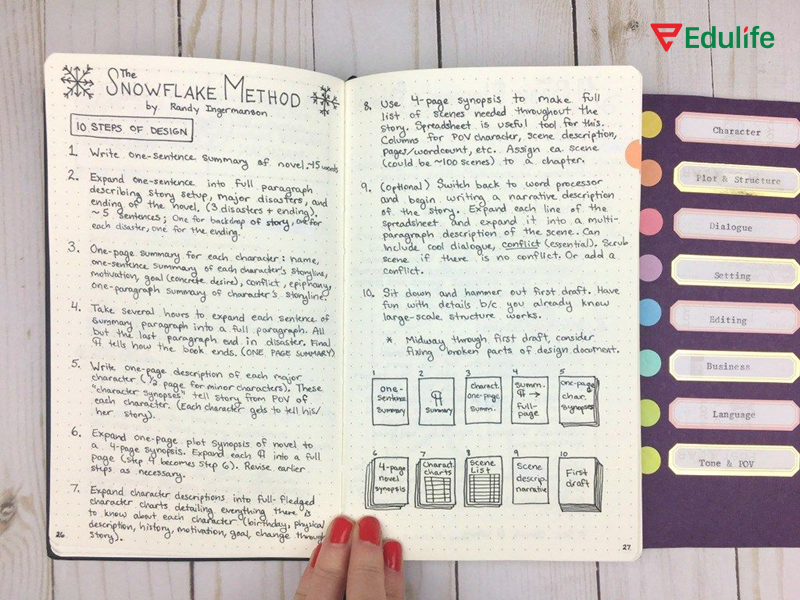 Edulife
The
SNOWFLAKE METHOD
by Randy Ingermanson
10 STEPS OF DESIGN
1. Write one-sentence summary of novel ~15 words
2. Expand one-sentence into full paragraph
describing story setup, major disasters, and
ending of the novel. (3 disasters + ending).
~5 sentences; One for backdrop of story, one for
each disaster, one for the ending.
3. One-page summary for each character: name,
one-sentence summary of each character's storyline,
motivation, goal (concrete desire), conflict, epiphany,
one-paragraph summary of character's storyline.
4. Take several hours to expand each sentence of
summary paragraph into a full paragraph. All
but the last paragraph end in disaster. Final
¶ tells how the book ends. (ONE PAGE SUMMARY)
5. Write one-page description of each major
character (1/2 page for minor characters). These
"character synopses" tell story from POV of
each character. (Each character gets to tell his/
her story).
6. Expand one-page plot synopsis of novel to
a 4-page synopsis. Expand each ¶ into a full
page (step 4 becomes step 6). Revise earlier
steps as necessary.
7. Expand character descriptions into full-fledged
character charts detailing everything there is
to know about each character (birthday, physical
description, history, motivation, goal, change through
story).
26
8. Use 4-page synopsis to make full
list of scenes needed throughout the
story. Spreadsheet is useful tool for this.
Columns for POV character, scene description,
pages/wordcount, etc. Assign ea. scene
(could be ~100 scenes) to a chapter.
9. (optional) Switch back to word processor
and begin writing a narrative description
of the story. Expand each line of the
spreadsheet and expand it into a multi-
paragraph description of the scene. Can
include cool dialogue, conflict (essential). Scrub
scene if there is no conflict. Or add a
conflict.
10. Sit down and hammer out first draft. Have
fun with details b/c you already know
large-scale structure works.
* Midway through first draft, consider
fixing broken parts of design document.
1 2 3 4 5
one-sentence summary
¶ summary
charact. one-page summ.
summ. ¶ → full-page
one-page char. synopses
6 7 8 9 10
4-page novel synopsis
Charact. charts
Scene List
Scene descrip. narrative
First draft
27
Character
Plot & Structure
Dialogue
Setting
Editing
Business
Language
Tone & POV